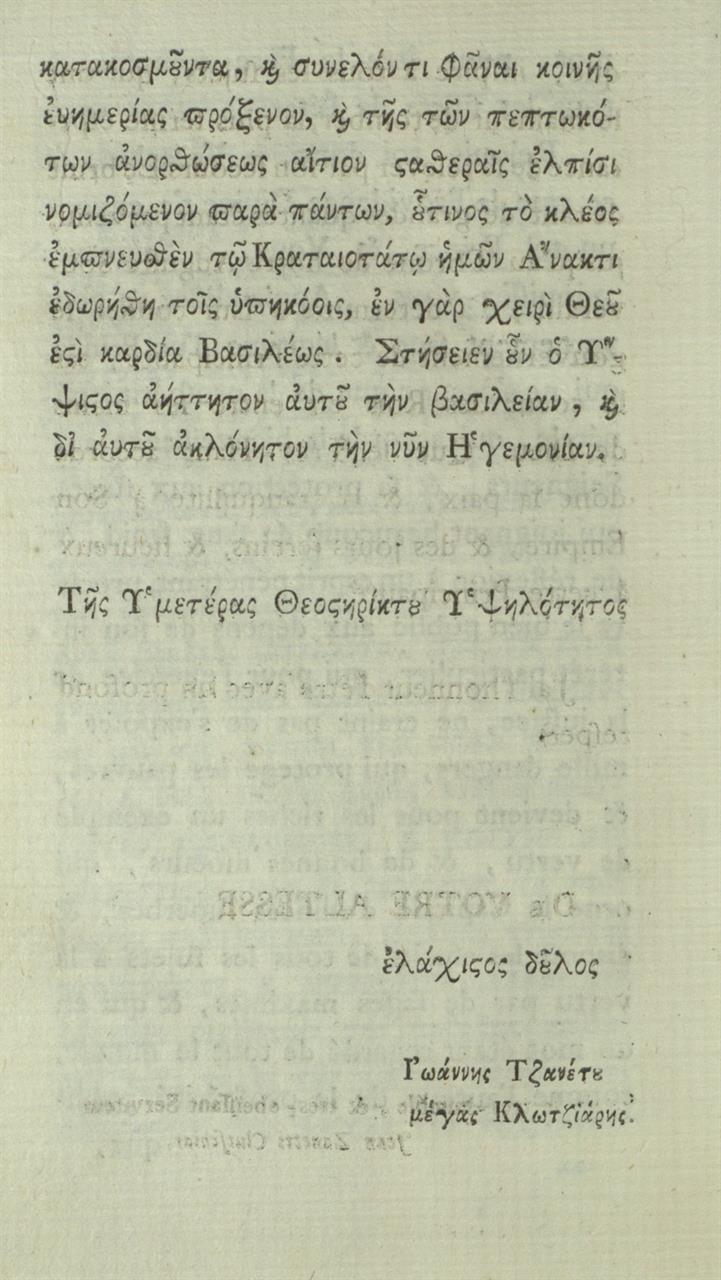 κατακοσμȣ͂ντα, ϗ̀ συνελόντι φᾶναι κοινῆς
ἐυημερίας ϖρόξενον, ϗ̀ τῆς τῶν πεπτωκό-
των ἀνορθώσεως αἴτιον ϛαθεραῖς ἐλπίσι
νομιζόμενον ϖαρὰ πάντων, ȣ̔͂τινος τὸ κλέος
ἐμϖνευσθὲν τῷ Κραταιοτάτῳ ἡμῶν Α῎νακτι
ἐδωρήθη τοῖς ὑϖηκόοις, ἐν γὰρ χειρὶ Θεȣ͂
ἐϛὶ καρδία Βασιλέως. Στήσειεν ȣ̓͂ν ὁ Υ῞-
ψιϛος ἀήττητον ἀυτȣ͂ τὴν βασιλείαν, ϗ̀
δἰ ἀυτȣ͂ ἀκλόνητον τὴν νῦν Η῾γεμονίαν.
Τῆς Υ῾μετέρας Θεοϛηρίκτȣ Υ῾ψηλότητος
ἐλάχιϛος δȣ͂λος
Ι᾿ωάννης Τζανέτȣ
μέγας Κλωτζιάρης.